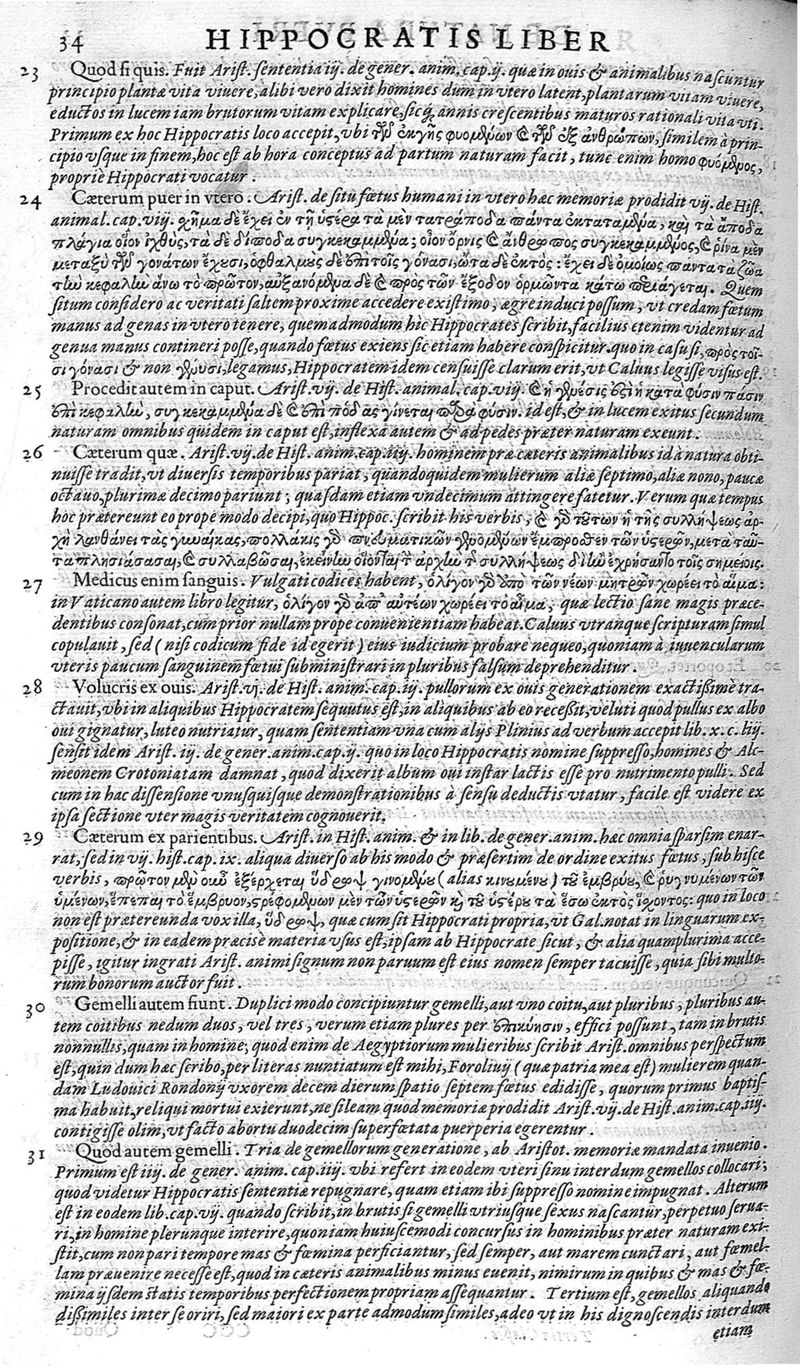 34 HIPPOCRATIS LIBER
23 Quod si quis. Fuit Arist. sententia iij. de gener. anim. cap. ij. quæ in ouis & animalibus nascuntur
principio plantæ vita viuere, alibi vero dixit homines dum in vtero latent, plantarum vitam viuere,
eductos in lucem iam brutorum vitam explicare, sicq; annis crescentibus maturos rationali vita vti.
Primum ex hoc Hippocratis loco accepit, vbi τῶν ἐκ γῆς φυομένων & τῶν ἐξ ἀνθρώπων, similem à prin-
cipio vsque in finem, hoc est ab hora conceptus ad partum naturam facit, tunc enim homo φυόμενος,
propriè Hippocrati vocatur.
24 Cæterum puer in vtero. Arist. de situ fœtus humani in vtero hæc memoriæ prodidit vij. de Hist.
animal. cap. viij. χῆμα δὲ ἔχει ἐν τῇ ὑστέρᾳ τὰ μὲν τατράποδα πάντα ἐκταταμένα, καὶ τὰ ἄποδα
πλάγια οἷον ἰχθὺς, τὰ δὲ δίποδα συγκεκαμμένα; οἷον ὄρνις & ἄνθρωπος συγκεκαμμένος, & ῥῖνα μὲν
μεταξὺ τῶν γονάτων ἔχουσι, ὀφθαλμοὺς δὲ ἐπὶ τοῖς γόνασι, ὦτα δὲ ἐκτός: ἔχει δὲ ὁμοίως παντα τὰ ζῶα
τὴν κεφαλὴν ἄνω τὸ πρῶτον, αὐξανόμενα δὲ & πρὸς τὴν ἔξοδον ὁρμῶντα κάτω περιάγεται. Quem
situm considero ac veritati saltem proxime accedere existimo, ægre induci possum, vt credam fœtum
manus ad genas in vtero tenere, quemadmodum hic Hippocrates scribit, facilius etenim videntur ad
genua manus contineri posse, quando fœtus exiens sic etiam habere conspicitur. quo in casu si, πρὸς τοῖ-
σι γόνασι & non γένυσι, legamus, Hippocratem idem censuisse clarum erit, vt Caluus legisse visus est.
25 Procedit autem in caput. Arist. vij. de Hist. animal. cap. viij. & ἡ γένεσίς ἐστι ἡ κατὰ φύσιν πᾶσιν
ἐπὶ κεφαλὴν, συγκεκαμμένα δὲ & ἐπὶ πόδας γίνεται παρὰ φύσιν. id est, & in lucem exitus secundum
naturam omnibus quidem in caput est, inflexa autem & ad pedes præter naturam exeunt.
26 Cæterum quæ. Arist. vij. de Hist. anim. cap. iiij. hominem præ cæteris animalibus id à natura obti-
nuisse tradit, vt diuersis temporibus pariat, quandoquidem mulierum aliæ septimo, aliæ nono, paucæ
octauo, plurimæ decimo pariunt; quasdam etiam vndecimum attingere fatetur. Verum quæ tempus
hoc prætereunt eo prope modo decipi, quo Hippoc. scribit his verbis, & γὰρ τούτων ἡ τῆς συλλήψεως ἀρ-
χὴ λανθάνει τὰς γυναῖκας, πολλάκις γὰρ πνευματικῶν γενομένων ἔμπροσθεν τῶν ὑστερῶν, μετὰ ταῦ-
τα πλησιάσασαι, & συλλαβῶσαι, ἐκείνην οἴονται τὴν ἀρχὴν τῆς συλλήψεως δι' ἣν ἐχρήσαντο τοῖς σημείοις.
27 Medicus enim sanguis. Vulgati codices habent, ὀλίγον γὰρ ἀπὸ τῶν νέων μητρῶν χωρέει τὸ αἷμα:
in Vaticano autem libro legitur, ὀλίγον γὰρ ἀπ' αὐτέων χωρέει τὸ αἷμα; quæ lectio sane magis præce-
dentibus consonat, cum prior nullam prope conuenientiam habeat. Caluus vtranque scripturam simul
copulauit, sed (nisi codicum fide id egerit) eius iudicium probare nequeo, quoniam à iuuencularum
vteris paucum sanguinem fœtui subministrari in pluribus falsum deprehenditur.
28 Volucris ex ouis. Arist. vj. de Hist. anim. cap. iij. pullorum ex ouis generationem exactissime tra-
ctauit, vbi in aliquibus Hippocratem sequutus est, in aliquibus ab eo recessit, veluti quod pullus ex albo
oui gignatur, luteo nutriatur, quam sententiam vna cum alijs Plinius ad verbum accepit lib. x. c. liij.
sensit idem Arist. iij. de gener. anim. cap. ij. quo in loco Hippocratis nomine suppresso, homines & Alc-
meonem Crotoniatam damnat, quod dixerit album oui instar lactis esse pro nutrimento pulli. Sed
cum in hac dissensione vnusquisque demonstrationibus à sensu deductis vtatur, facile est videre ex
ipsa sectione vter magis veritatem cognouerit.
29 Cæterum ex parientibus. Arist. in Hist. anim. & in lib. de gener. anim. hæc omnia sparsim enar-
rat, sed in vij. hist. cap. ix. aliqua diuerso ab his modo & præsertim de ordine exitus fœtus, sub hisce
verbis, πρῶτον μὲν οὖν ἐξέρχεται ὕδρωψ γινομένου (alias κινουμένου) τοῦ ἐμβρύου, & ῥηγνυμένων τῶν
ὑμένων, ἔπειται τὸ ἔμβρυον, στρεφομένων μὲν τῶν ὑστερῶν καὶ τοῦ ὑστέρου τὰ ἔσω ἐκτὸς ἴχοντος: quo in loco
non est prætereunda vox illa, ὕδρωψ, quæ cum sit Hippocrati propria, vt Gal. notat in linguarum ex-
positione, & in eadem præcise materia vsus est, ipsam ab Hippocrate sicut, & alia quamplurima acce-
pisse, igitur ingrati Arist. animi signum non paruum est eius nomen semper tacuisse, quia sibi multo-
rum bonorum auctor fuit.
30 Gemelli autem fiunt. Duplici modo concipiuntur gemelli, aut vno coitu, aut pluribus, pluribus au-
tem coitibus nedum duos, vel tres, verum etiam plures per ἐπικύησιν, effici possunt, tam in brutis
nonnullis, quam in homine; quod enim de Aegyptiorum mulieribus scribit Arist. omnibus perspectum
est, quin dum hæc scribo, per literas nuntiatum est mihi, Foroliuij (quæ patria mea est) mulierem quan-
dam Ludouici Rondonij vxorem decem dierum spatio septem fœtus edidisse, quorum primus baptis-
ma habuit, reliqui mortui exierunt, ne sileam quod memoriæ prodidit Arist. vij. de Hist. anim. cap. iiij.
contigisse olim, vt facto abortu duodecim superfœtata puerperia egerentur.
31 Quod autem gemelli. Tria de gemellorum generatione, ab Aristot. memoriæ mandata inuenio.
Primum est iiij. de gener. anim. cap. iiij. vbi refert in eodem vteri sinu interdum gemellos collocari;
quod videtur Hippocratis sententiæ repugnare, quam etiam ibi suppresso nomine impugnat. Alterum
est in eodem lib. cap. vij. quando scribit, in brutis si gemelli vtriusque sexus nascantur, perpetuo serua-
ri, in homine plerunque interire, quoniam huiuscemodi concursus in hominibus præter naturam exi-
stit, cum non pari tempore mas & fœmina perficiantur, sed semper, aut marem cunctari, aut fœmel-
lam præuenire necesse est, quod in cæteris animalibus minus euenit, nimirum in quibus & mas & fœ-
mina ijsdem statis temporibus perfectionem propriam assequantur. Tertium est, gemellos aliquando
dissimiles inter se oriri, sed maiori ex parte admodum similes, adeo vt in his dignoscendis interdum
etiam